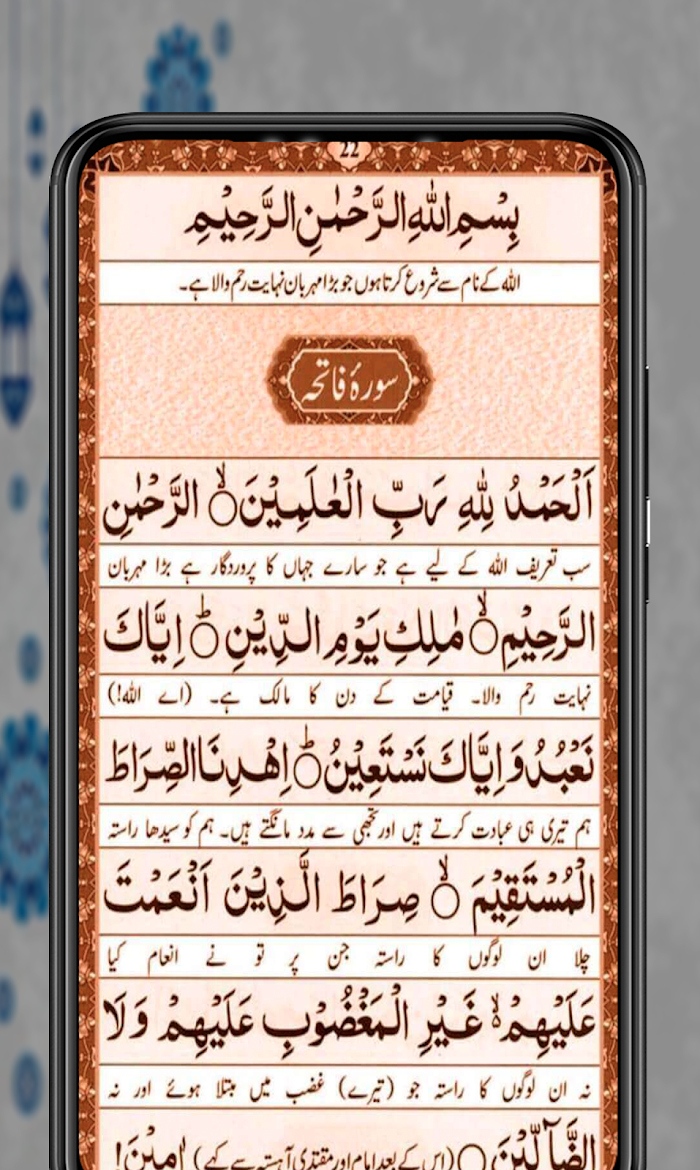 22
بِسْمِ اللهِ الرَّحْمٰنِ الرَّحِيْمِ
اللہ کے نام سے شروع کرتا ہوں جو بڑا مہربان نہایت رحم والا ہے۔
سورۂ فاتحہ
اَلْحَمْدُ لِلّٰهِ رَبِّ الْعٰلَمِيْنَ ۙ الرَّحْمٰنِ
سب تعریف اللہ کے لیے ہے جو سارے جہاں کا پروردگار ہے بڑا مہربان
الرَّحِيْمِ ۙ مٰلِكِ يَوْمِ الدِّيْنِ ؕ اِيَّاكَ
نہایت رحم والا۔ قیامت کے دن کا مالک ہے۔ (اے اللہ!)
نَعْبُدُ وَ اِيَّاكَ نَسْتَعِيْنُ ؕ اِهْدِنَا الصِّرَاطَ
ہم تیری ہی عبادت کرتے ہیں اور تجھی سے مدد مانگتے ہیں۔ ہم کو سیدھا راستہ
الْمُسْتَقِيْمَ ۙ صِرَاطَ الَّذِيْنَ اَنْعَمْتَ
چلا ان لوگوں کا راستہ جن پر تو نے انعام کیا
عَلَيْهِمْ ۙ غَيْرِ الْمَغْضُوْبِ عَلَيْهِمْ وَلَا
نہ ان لوگوں کا راستہ جو (تیرے) غضب میں مبتلا ہوئے اور نہ
الضَّآلِّيْنَ (اس کے بعد امام اور مقتدی آہستہ سے کہے) اٰمِيْنَ!